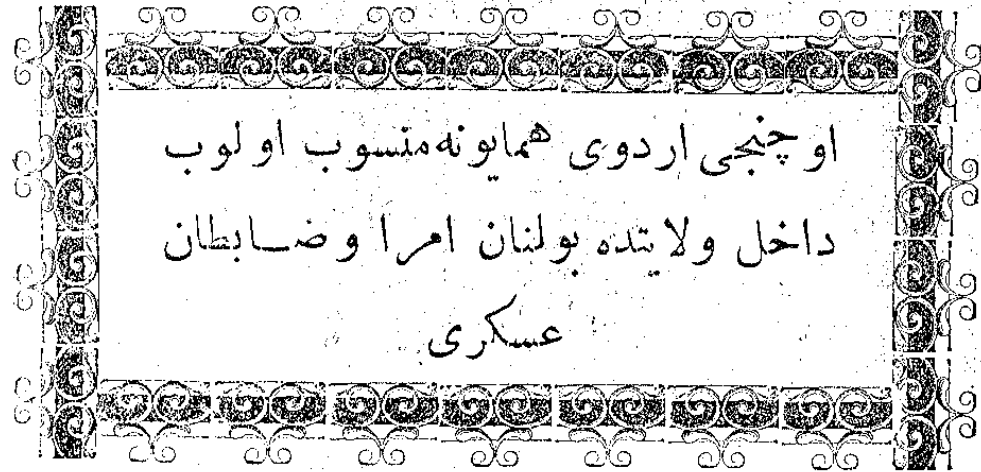 اوچنجی اردوی همایونه منسوب اولوب
داخل ولایتده بولنان امرا و ضابطان
عسکری